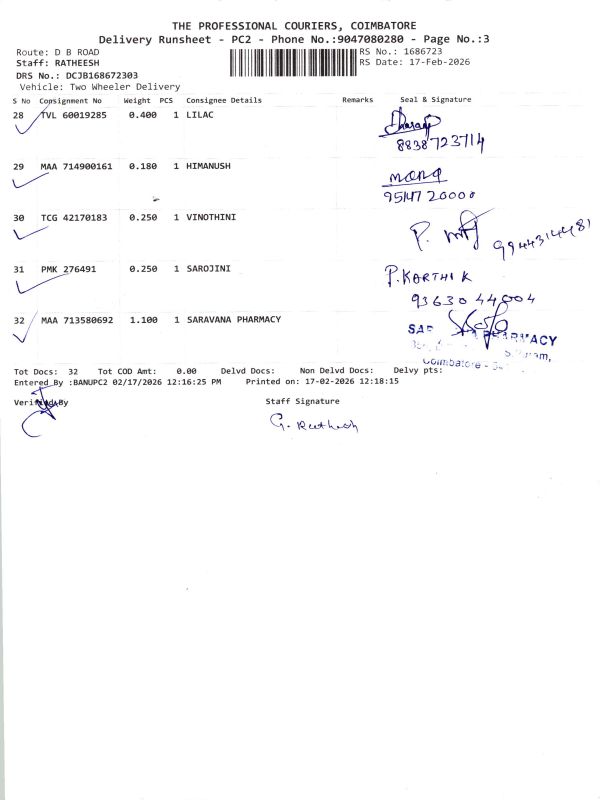 THE PROFESSIONAL COURIERS, COIMBATORE
Delivery Runsheet - PC2 - Phone No.:9047080280 - Page No.:3
Route: D B ROAD RS No.: 1686723
Staff: RATHEESH RS Date: 17-Feb-2026
DRS No.: DCJB168672303
Vehicle: Two Wheeler Delivery
S No Consignment No Weight PCS Consignee Details Remarks Seal & Signature
28 TVL 60019285 0.400 1 LILAC
8838723714
29 MAA 714900161 0.180 1 HIMANUSH mana
95147 20000
30 TCG 42170183 0.250 1 VINOTHINI P.
9944314481
31 PMK 276491 0.250 1 SAROJINI P.KARTHIK
93630 44004
32 MAA 713580692 1.100 1 SARAVANA PHARMACY
Coimbatore -
Tot Docs: 32 Tot COD Amt: 0.00 Delvd Docs: Non Delvd Docs: Delvy pts:
Entered By :BANUPC2 02/17/2026 12:16:25 PM Printed on: 17-02-2026 12:18:15
Verified By Staff Signature
G. Ratheesh